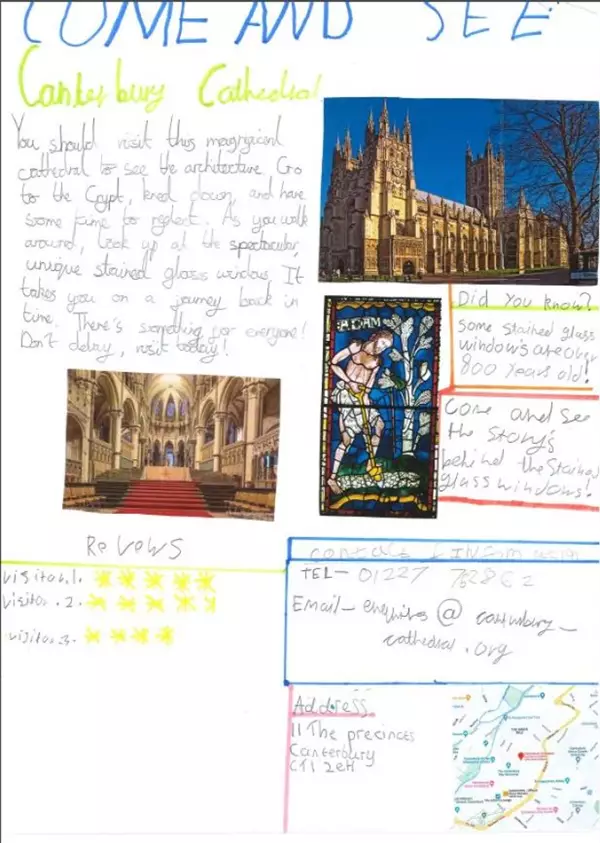 COME AND SEE
Canterbury Cathedral
You should visit this magnificant
cathedral to see the architecture. Go
to the Cypt, kneel down, and have
some time to reflect. As you walk
around, look up at the spectacular,
unique stained glass window. It
takes you on a journey back in
time. There's something for everyone!
Don't delay, visit today!
ADAM
Did you know?
some stained glass
window's are over
800 years old!
Come and see
the story's
behind the stained
glass windows!
Revews
visitor.1.
visitor.2.
visitor 3.
contact
TEL— 01227 762862
Email— enquiries @ canterbury—
cathedral.org
Address
11 The precincts
Canterbury
CT1 2EH